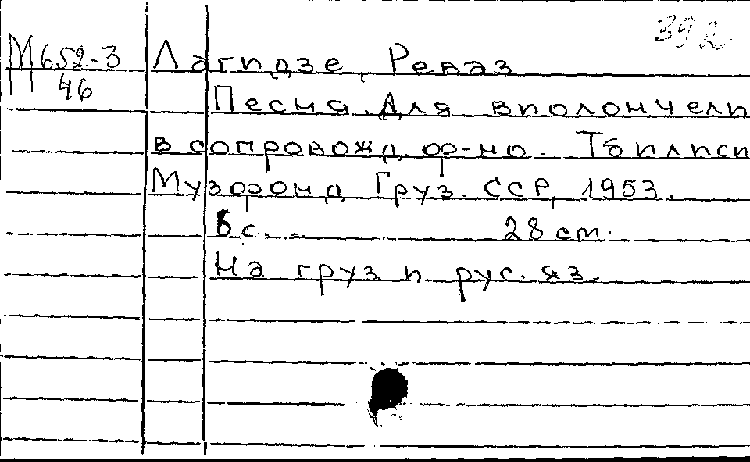 392
М652-3 Лагидзе, Реваз
46 Песня. Для виолончели
в сопровожд. ф-но. Тбилиси
Музфонд Груз. ССР, 1953.
6 с. 28 cm.
На груз и рус. яз.